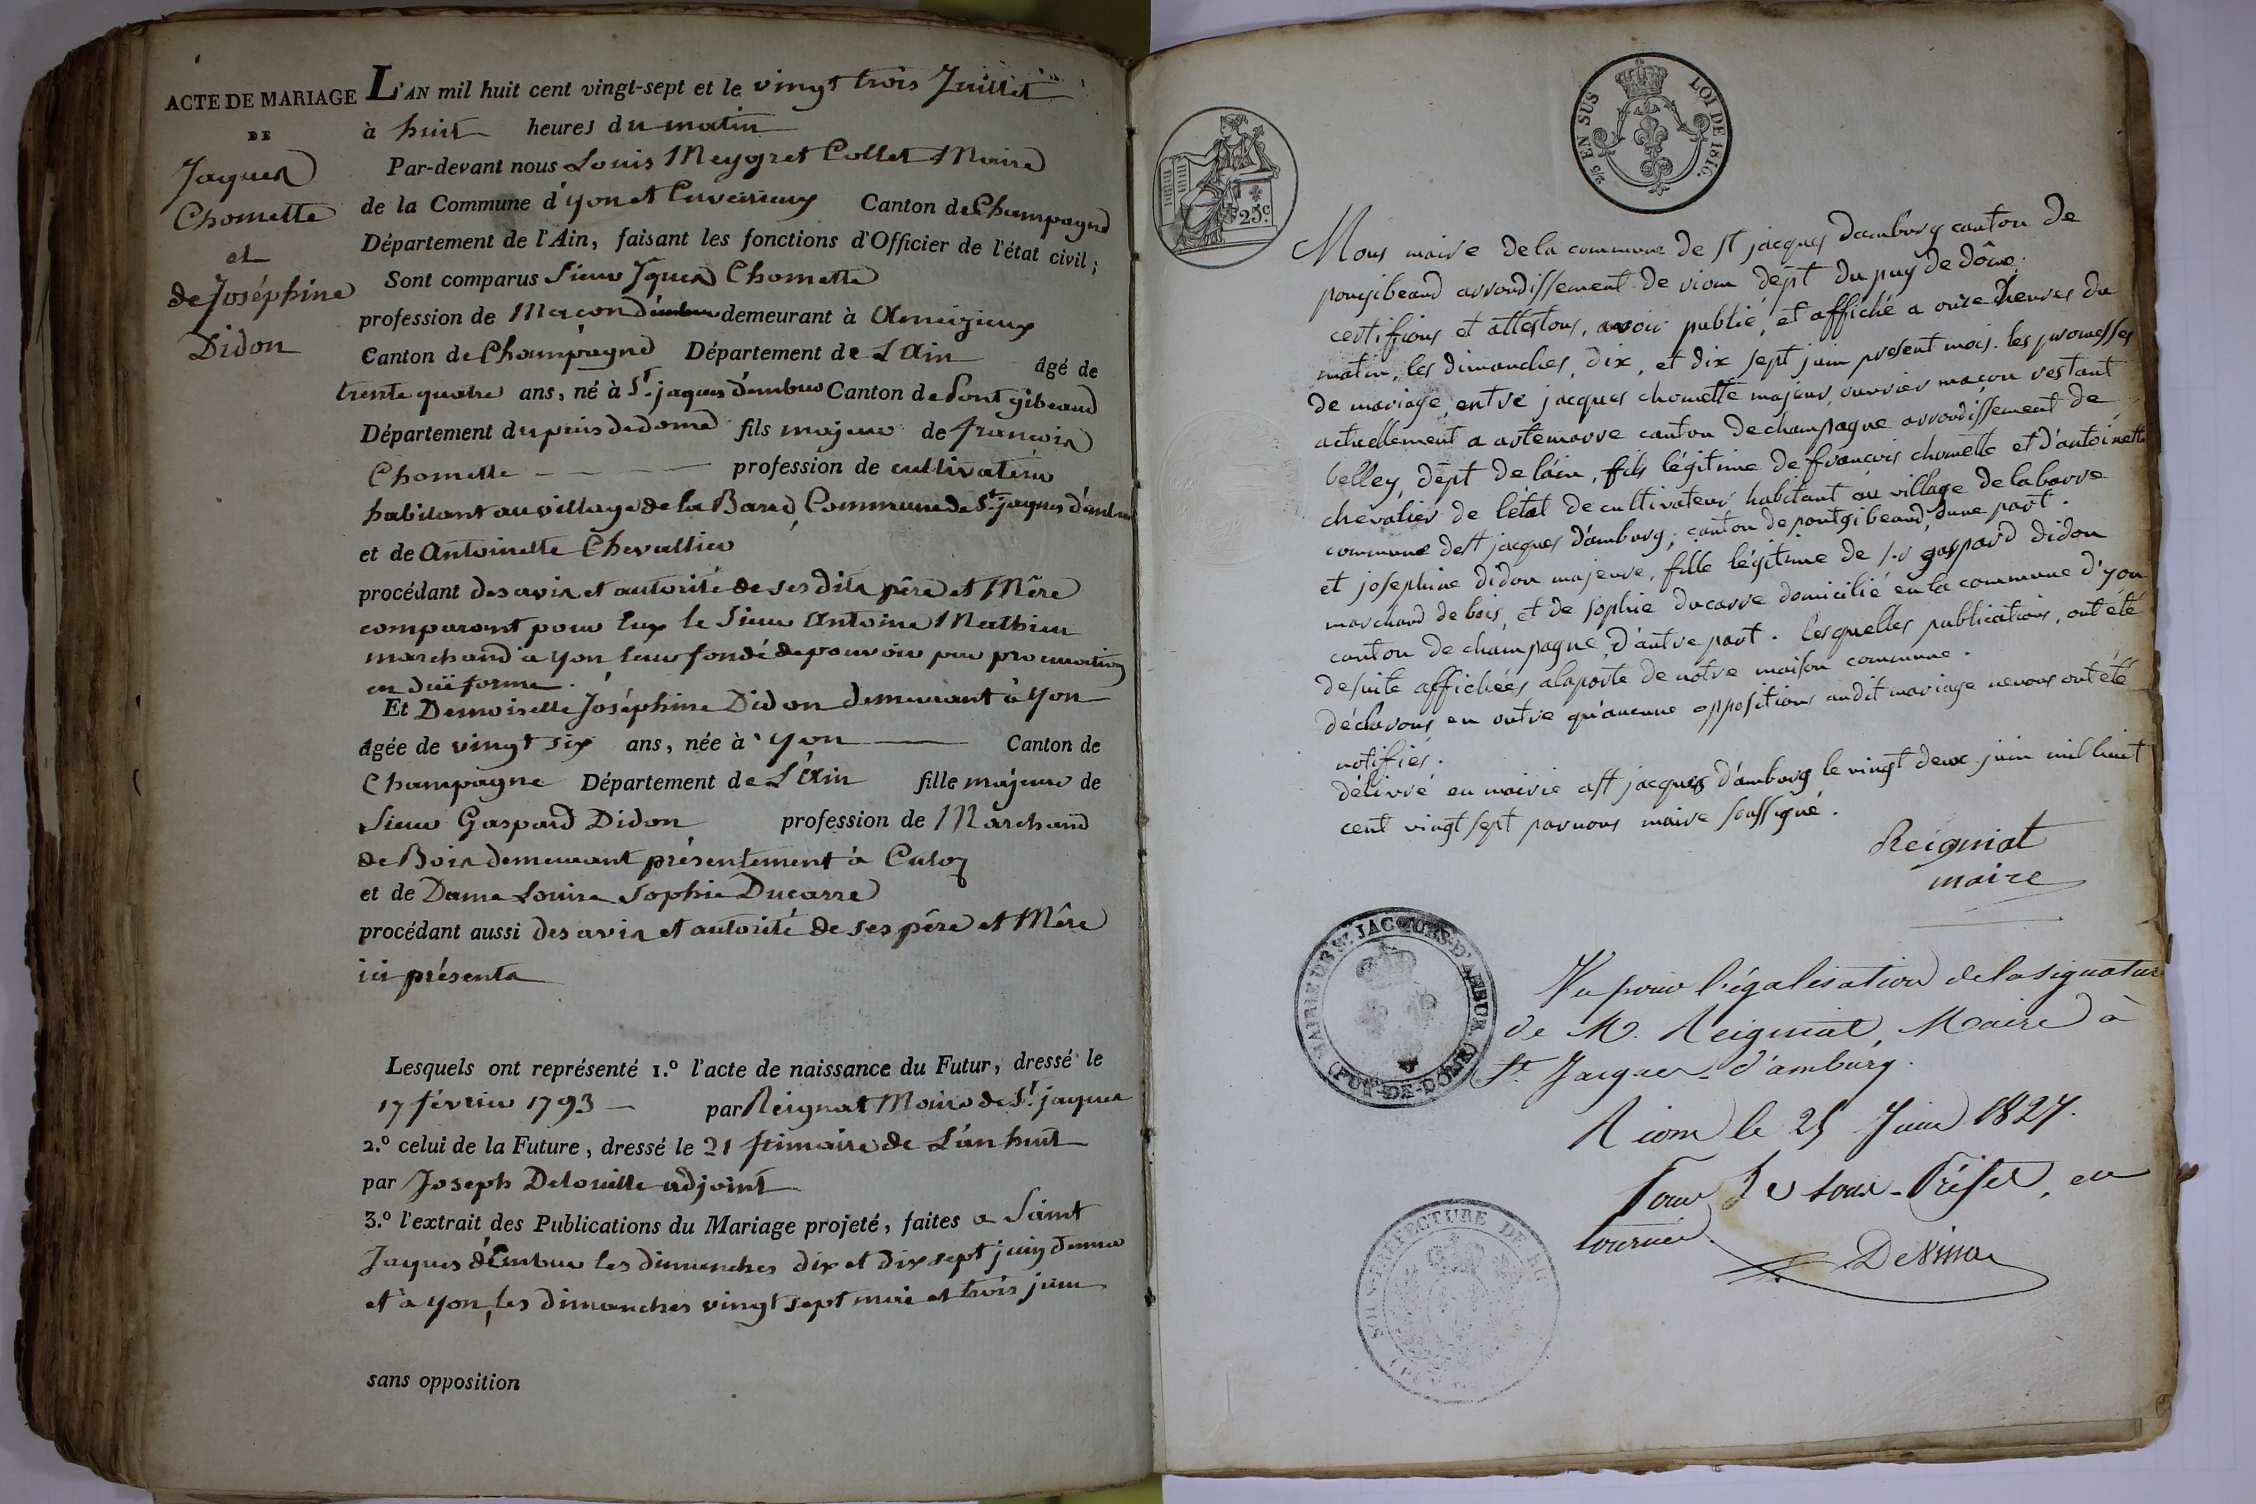 ACTE DE MARIAGE
DE
Jaques
Chomette
et
de Joséphine
Didon
L'AN mil huit cent vingt-sept et le vingt trois Juillet
à huit heures du matin
Par-devant nous Louis Meygret Collet Maire
de la Commune d'yon et Cuvérieux Canton de Champagne
Département de l'Ain, faisant les fonctions d'Officier de l'état civil;
Sont comparus Sieur Jques Chomette
profession de Maçon demeurant à Amezieux
Canton de Champagne Département de L'Ain âgé de
trente quatre ans, né à St. jaques d'embur Canton de Pont gibeaud
Département du puis de dome fils majeur de françois
Chomette profession de cultivateur
habitant au village de la Barre, Commune de St. jaques d'embur
et de Antoinette Chevallier
procédant des avis et autorité de ses dits père et Mère
comparant pour Eux le Sieur Antoine Mathieu
marchand à yon leur fondé de pouvoir par procuration
en duë forme.
Et Demoiselle Joséphine Didon demeurant à yon
âgée de vingt six ans, née à yon Canton de
Champagne Département de L'Ain fille majeure de
Sieur Gaspard Didon profession de Marchand
de Bois demeurant présentement à Culoz
et de Dame Louise Sophie Ducarre
procédant aussi des avis et autorité de ses père et Mère
ici présents
Lesquels ont représenté 1.º l'acte de naissance du Futur, dressé le
17 février 1793 par Reignat Maire de St. jaques
2.º celui de la Future, dressé le 21 frimaire de L'an huit
par Joseph Delouille adjoint
3.º l'extrait des Publications du Mariage projeté, faites a Saint
Jaques d'Embur les dimanches dix et dix sept juin dernier
et à yon, les dimanches vingt sept mai et trois juin
sans opposition
25 c.
2/5 EN SUS LOI DE 1816.
Nous maire de la commune de st jacques d'amburg canton de
pongibeaud arrondissement de riom dépt du puy de dôme;
certifions et attestons, avoir publié, et affiché a onze heures du
matin, les dimanches, dix, et dix sept juin present mois. les promesses
de mariage, entre jacques chomette majeur, ouvrier maçon restant
actuellement a artemarre canton de champagne arrondissement de
belley, dépt de láin, fils légitime de francois chomette et d'antoinette
chevalier de létat de cultivateur habitant au village de la barre
commune de st jacques d'amburg, canton de pontgibeaud, d'une part.
et josephine didon majeure, fille légitime de s.r gaspard didon
marchand de bois, et de sophie ducarre domicilié en la commune d'yon
canton de champagne, d'autre part. lesquelles publications, ont été
desuite affichées alaporte de notre maison commune.
déclarons, en outre qu'aucune oppositions audit mariage nenous ont été
notifiés.
délivré en mairie a st jacques d'amburg le vingt deux juin mil huit
cent vingt sept par nous maire soussigné.
Reigniat
maire
MAIRIE DE St. JACQUES-D'AMBUR (PUY-DE-DÔME)
Vu pour légalisation de la signature
de M. Reigniat, Maire à
St. Jacques-d'amburg.
Riom le 25 Juin 1827.
Pour Le sous-Préfet, en
tournée.
SOUS-PRÉFECTURE DE